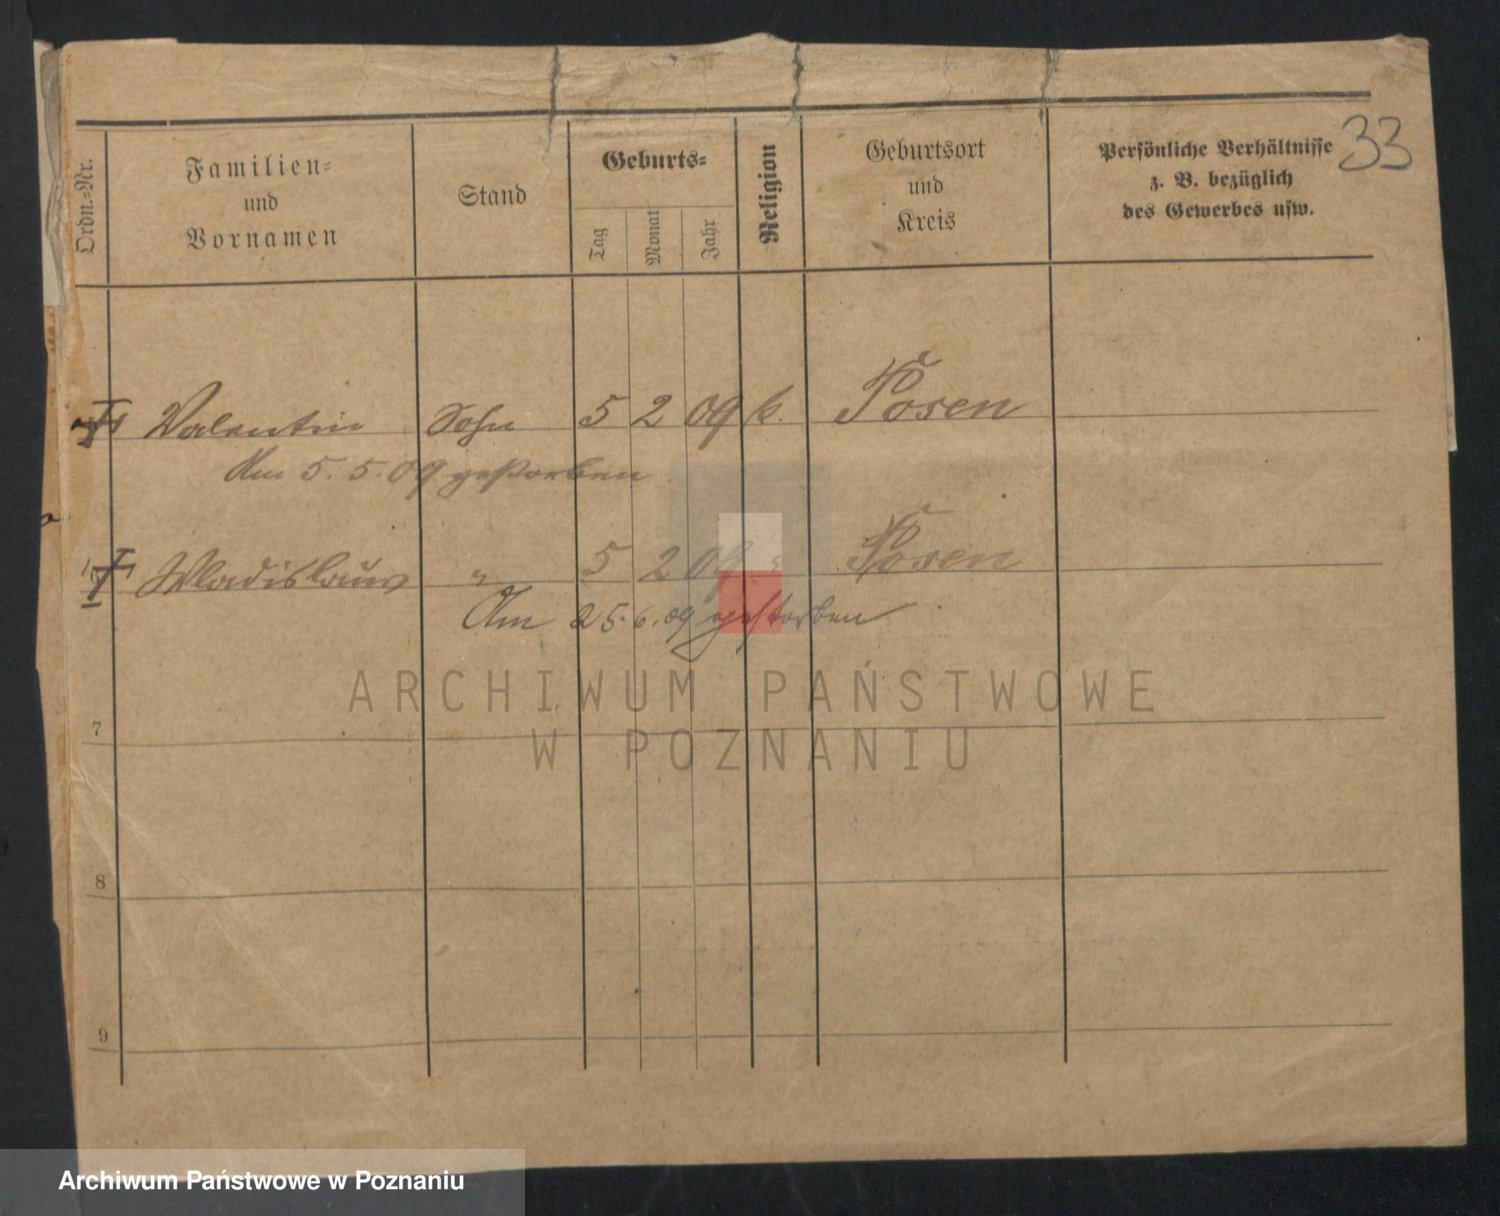 33
Ordn.=Nr.
Familien=
und
Vornamen
Stand
Geburts=
Tag
Monat
Jahr
Religion
Geburtsort
und
Kreis
Persönliche Verhältnisse
z. B. bezüglich
des Gewerbes usw.
Valentin Sohn 5 2 09 k. Posen
Am 5. 5. 09 gestorben
Wladislaus " 5 2 09 " Posen
Am 25. 6. 09 gestorben
7
8
9
ARCHIWUM PAŃSTWOWE
W POZNANIU
Archiwum Państwowe w Poznaniu